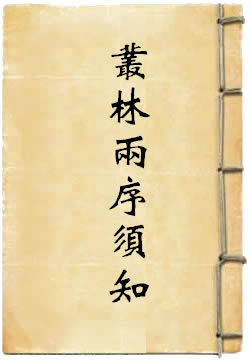 叢林兩序須知